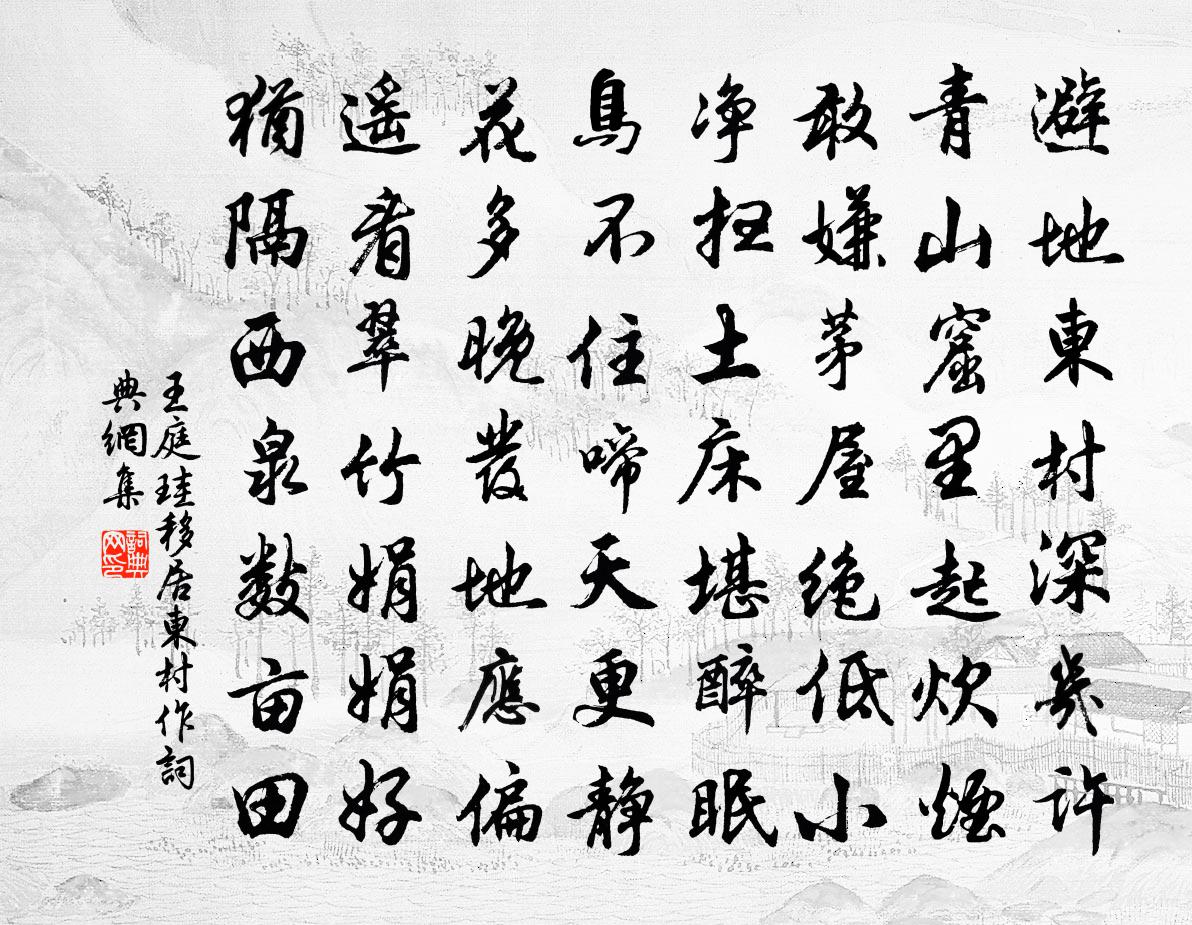 避地東村深幾許
青山窟里起炊煙
敢嫌茅屋絶低小
净掃土床堪醉眠
鳥不住啼天更静
花多晚發地應偏
遥看翠竹娟娟好
猶隔西泉數亩田
王庭珪移居東村作詞
典網集
詞典
网印